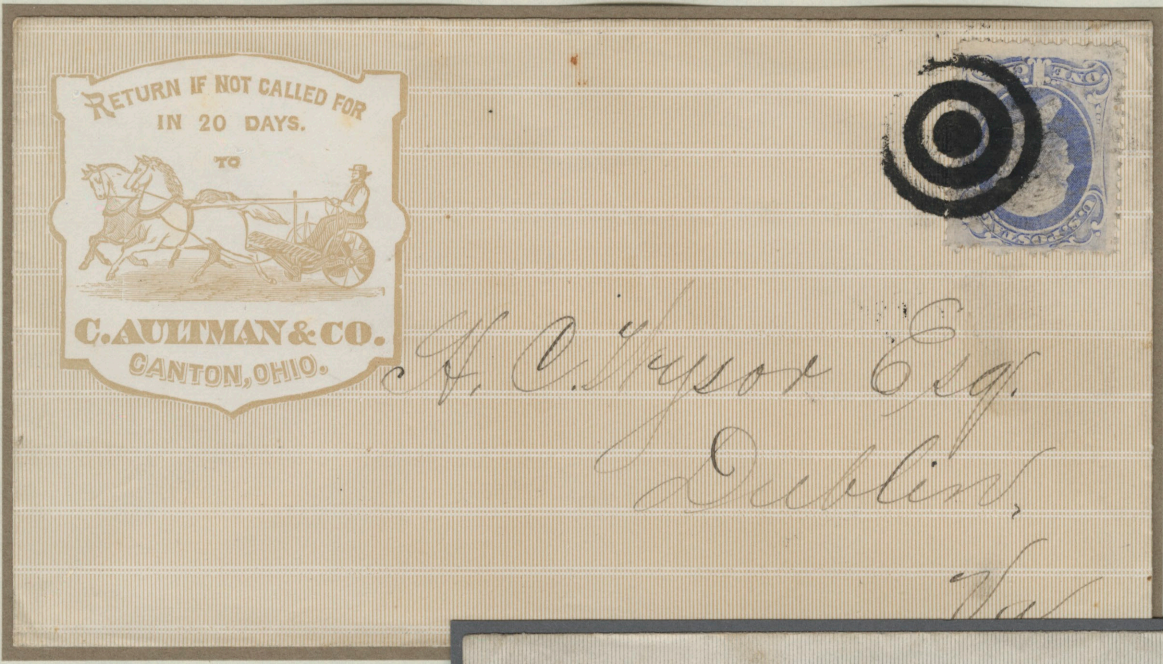 RETURN IF NOT CALLED FOR
IN 20 DAYS.
TO
C. AULTMAN & CO.
CANTON, OHIO.
H. C. Wysor Esq.
Dublin,
Va